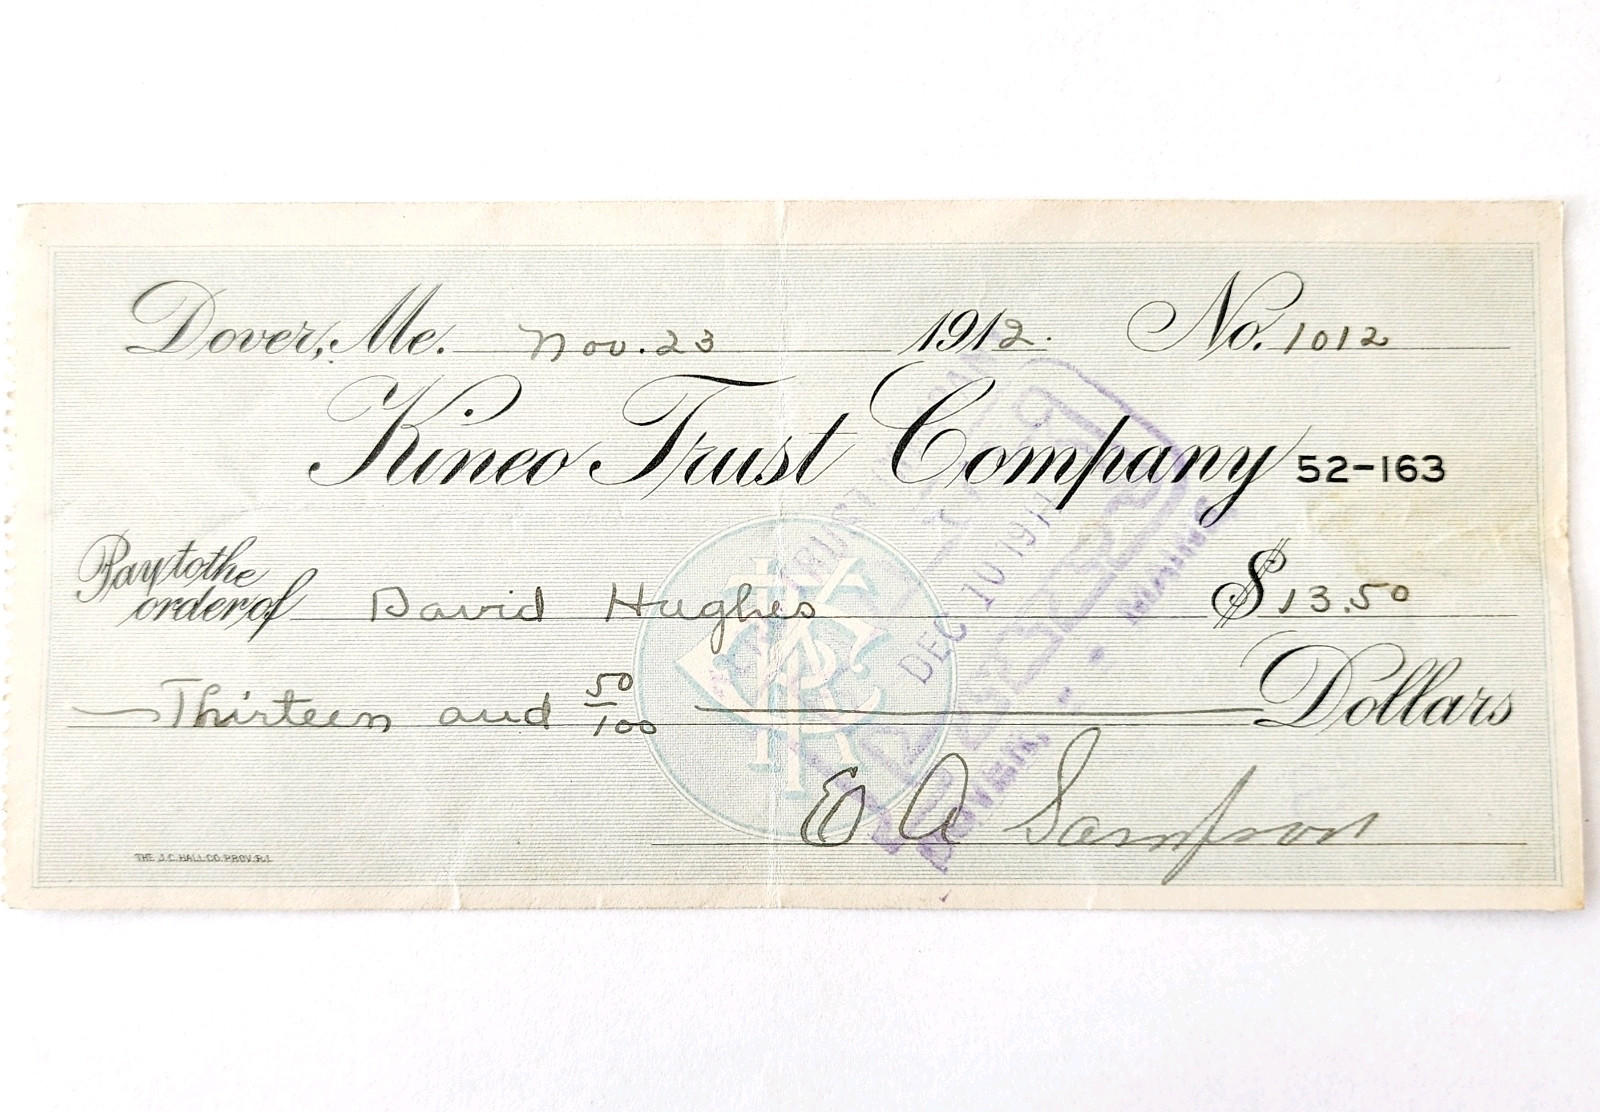 Dover, Me. Nov. 23 1912. No. 1012
Kineo Trust Company 52-163
Pay to the
order of David Hughes $13.50
Thirteen and 50/100 Dollars
E A Sampson
THE J.C. HALL CO. PROV. R.I.
KTC
DEC 10 191
DOVER, - - MAINE